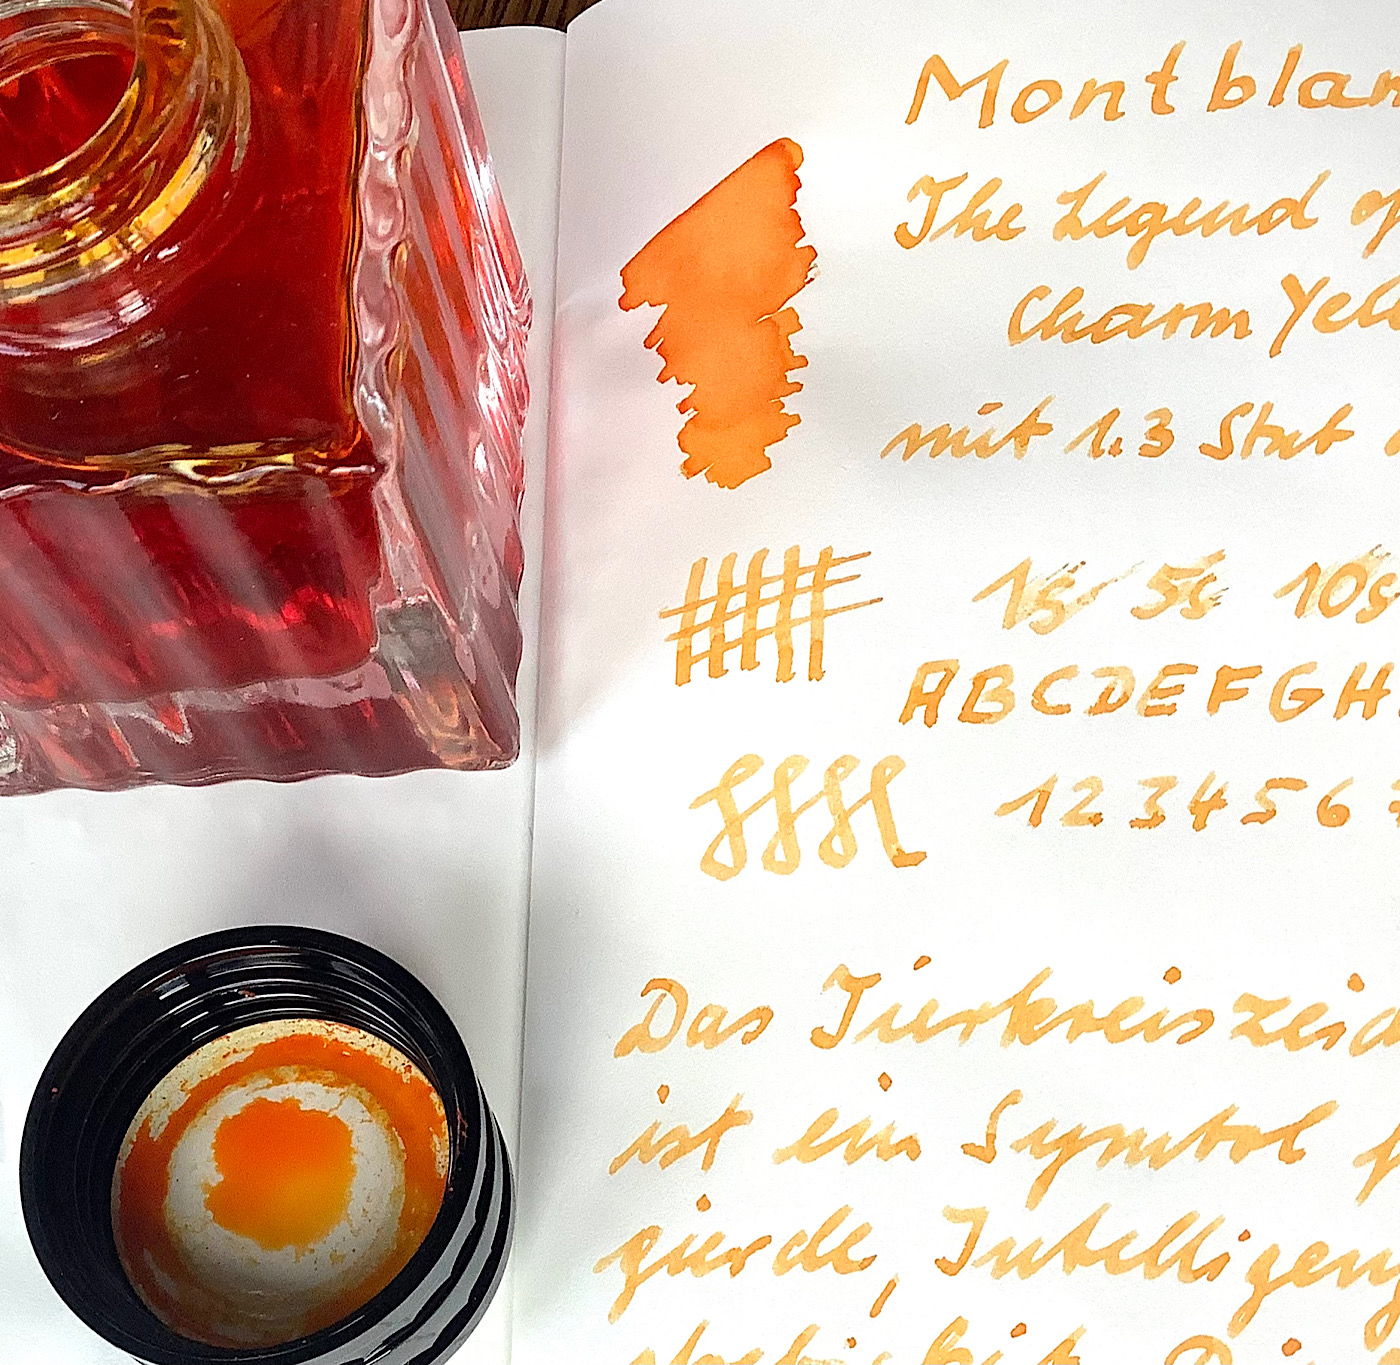 Montblan
The Legend of
Charm Yell
mit 1.3 Stub
1s 5s 10s
ABCDEFGH
1 2 3 4 5 6 7
Das Tierkreiszeic
ist ein Symbol f
gierde, Intelligenz